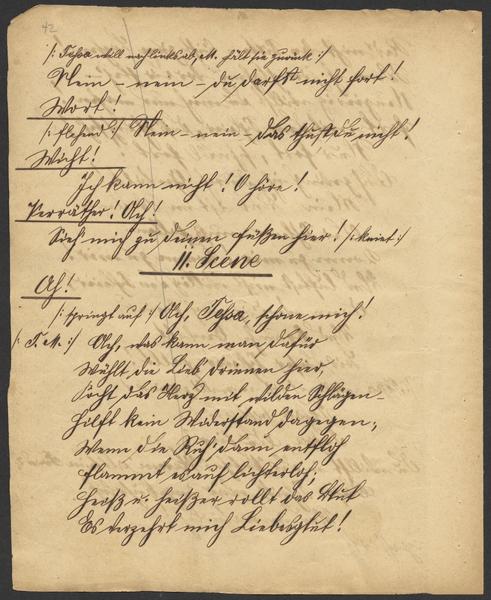 42
/: Tessa will nach links ab, M. hält sie zurück :/
Nein – nein – du darfst nicht fort!
Wort!
/: flehend :/ Nein – nein – das thust du nicht!
Wicht!
Ich kann nicht! O höre!
Verräther! Ach!
Sieh mich zu deinen Füßen hier! /: kniet :/
11. Scene
Ah!
/: springt auf :/ Ach, Tessa, schone mich!
/: T. M. :/ Ach was kann man dafür
Wühlt die Lieb' drinnen hier
Pocht das Herz mit wilden Schlägen –
Hilft kein Widerstand dagegen,
Wenn die Ruh' dann entfloh
Flammt es auf lichterloh;
Heiß u. heißer rollt das Blut
Es verzehrt mich Liebesglut!